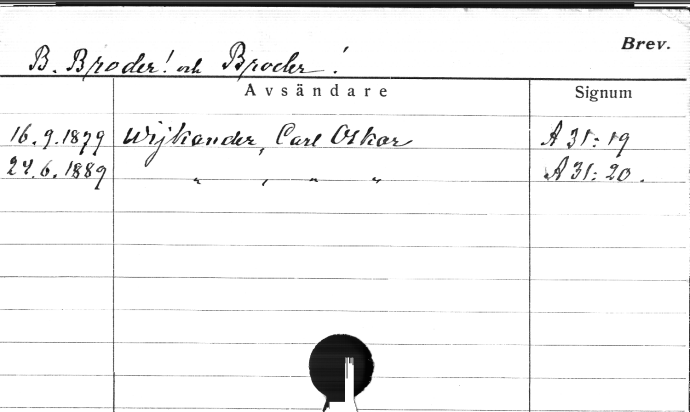 Brev.
B. Broder! och Broder!
Avsändare Signum
16.9.1879 Wijkander, Carl Oskar A 31:19
24.6.1889 " , " " A 31:20.